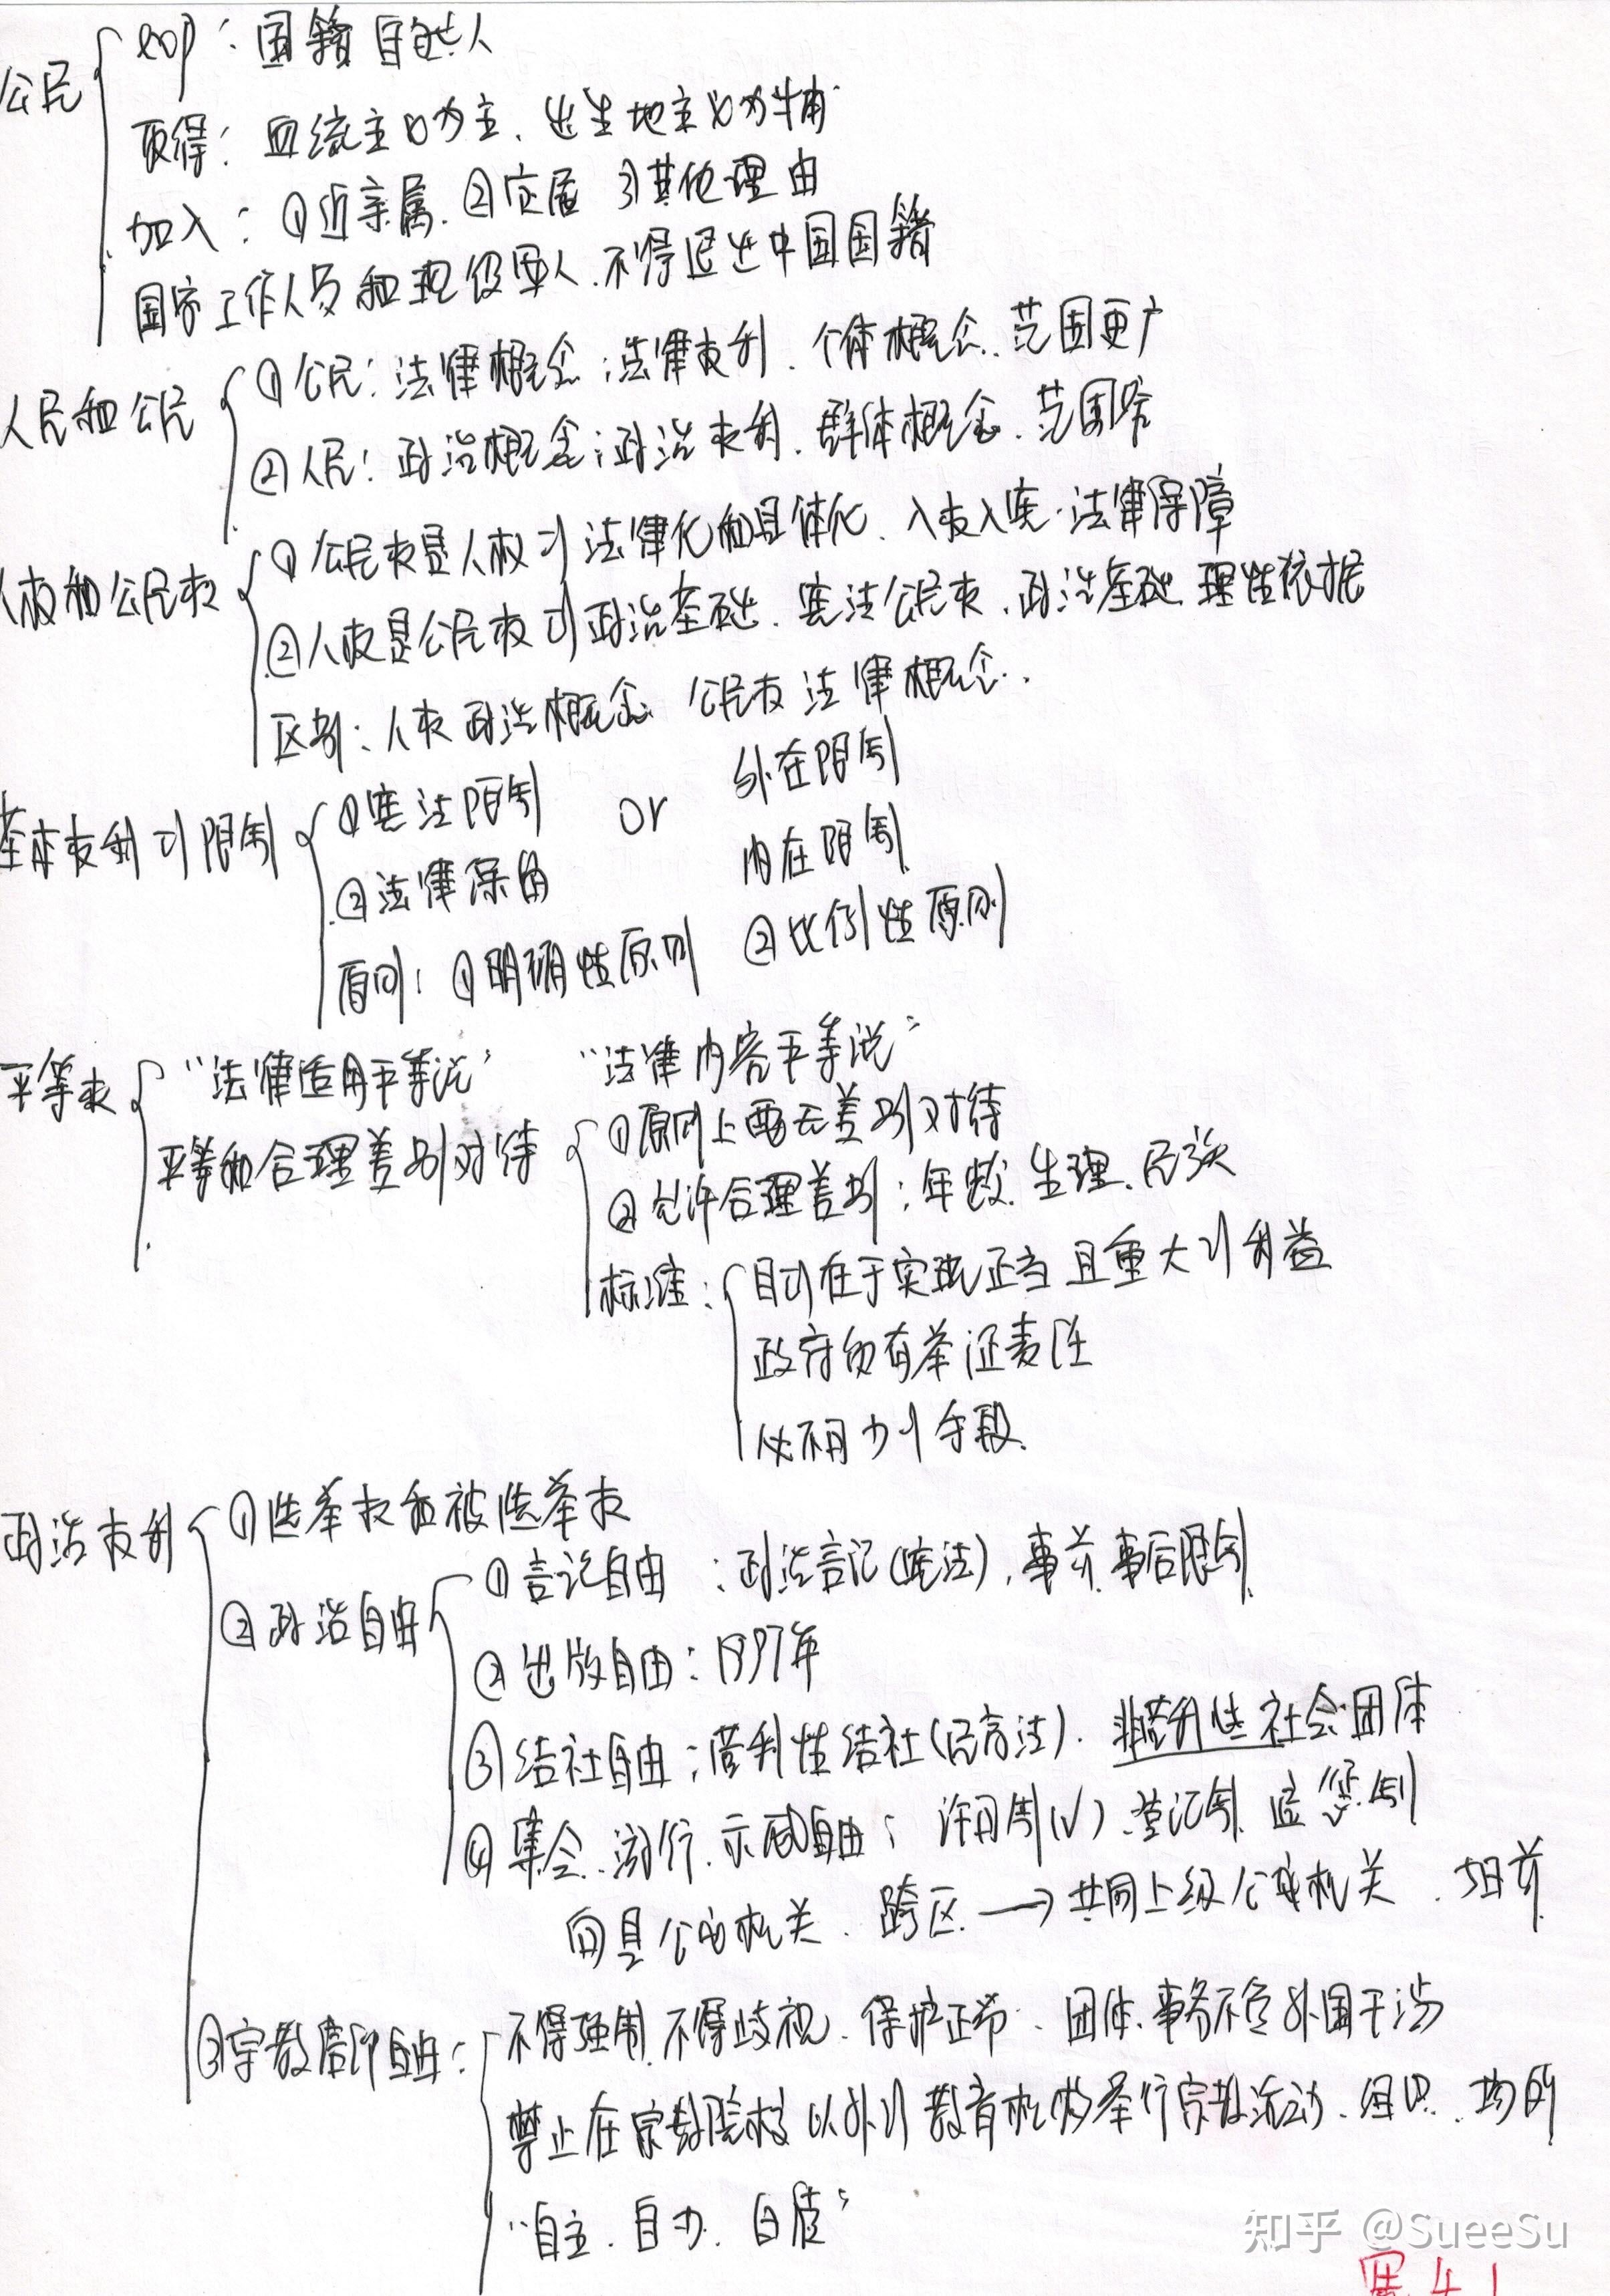 公民
即：国籍 自然人
取得：血统主义为主、出生地主义为辅
加入：①近亲属、②定居 ③其他理由
国家工作人员和现役军人、不得退出中国国籍
人民和公民
①公民：法律概念；法律权利、个体概念、范围更广
②人民：政治概念；政治权利、群体概念、范围窄
人权和公民权
①公民权是人权的法律化和具体化、人权入宪、法律保障
②人权是公民权的政治基础、宪法公民权、政治基础、理性依据
区别：人权 政治概念 公民权 法律概念.
基本权利的限制
①宪法限制 or 外在限制
②法律保留 内在限制
原则：①明确性原则 ②比例性原则
平等权
“法律适用平等说” “法律内容平等说”
平等和合理差别对待
①原则上要无差别对待
②允许合理差别：年龄、生理、民族
标准：
目的在于实现正当且重大的利益
政府负有举证责任
必不可少的手段
政治权利
①选举权和被选举权
②政治自由
①言论自由：政治言论(宪法)、事前、事后限制
②出版自由：1997年
③结社自由：营利性结社(民商法)、非营利性社会团体
④集会、游行、示威自由：许可制(√)、登记制、追惩制
向县公安机关、跨区→共同上级公安机关、5日前
③宗教信仰自由：
不得强制、不得歧视、保护正常、团体、事务不受外国干涉
禁止在宗教院校以外的教育机构举行宗教活动、组织、场所
“自主、自办、自度”
知乎 @SueeSu
4.1